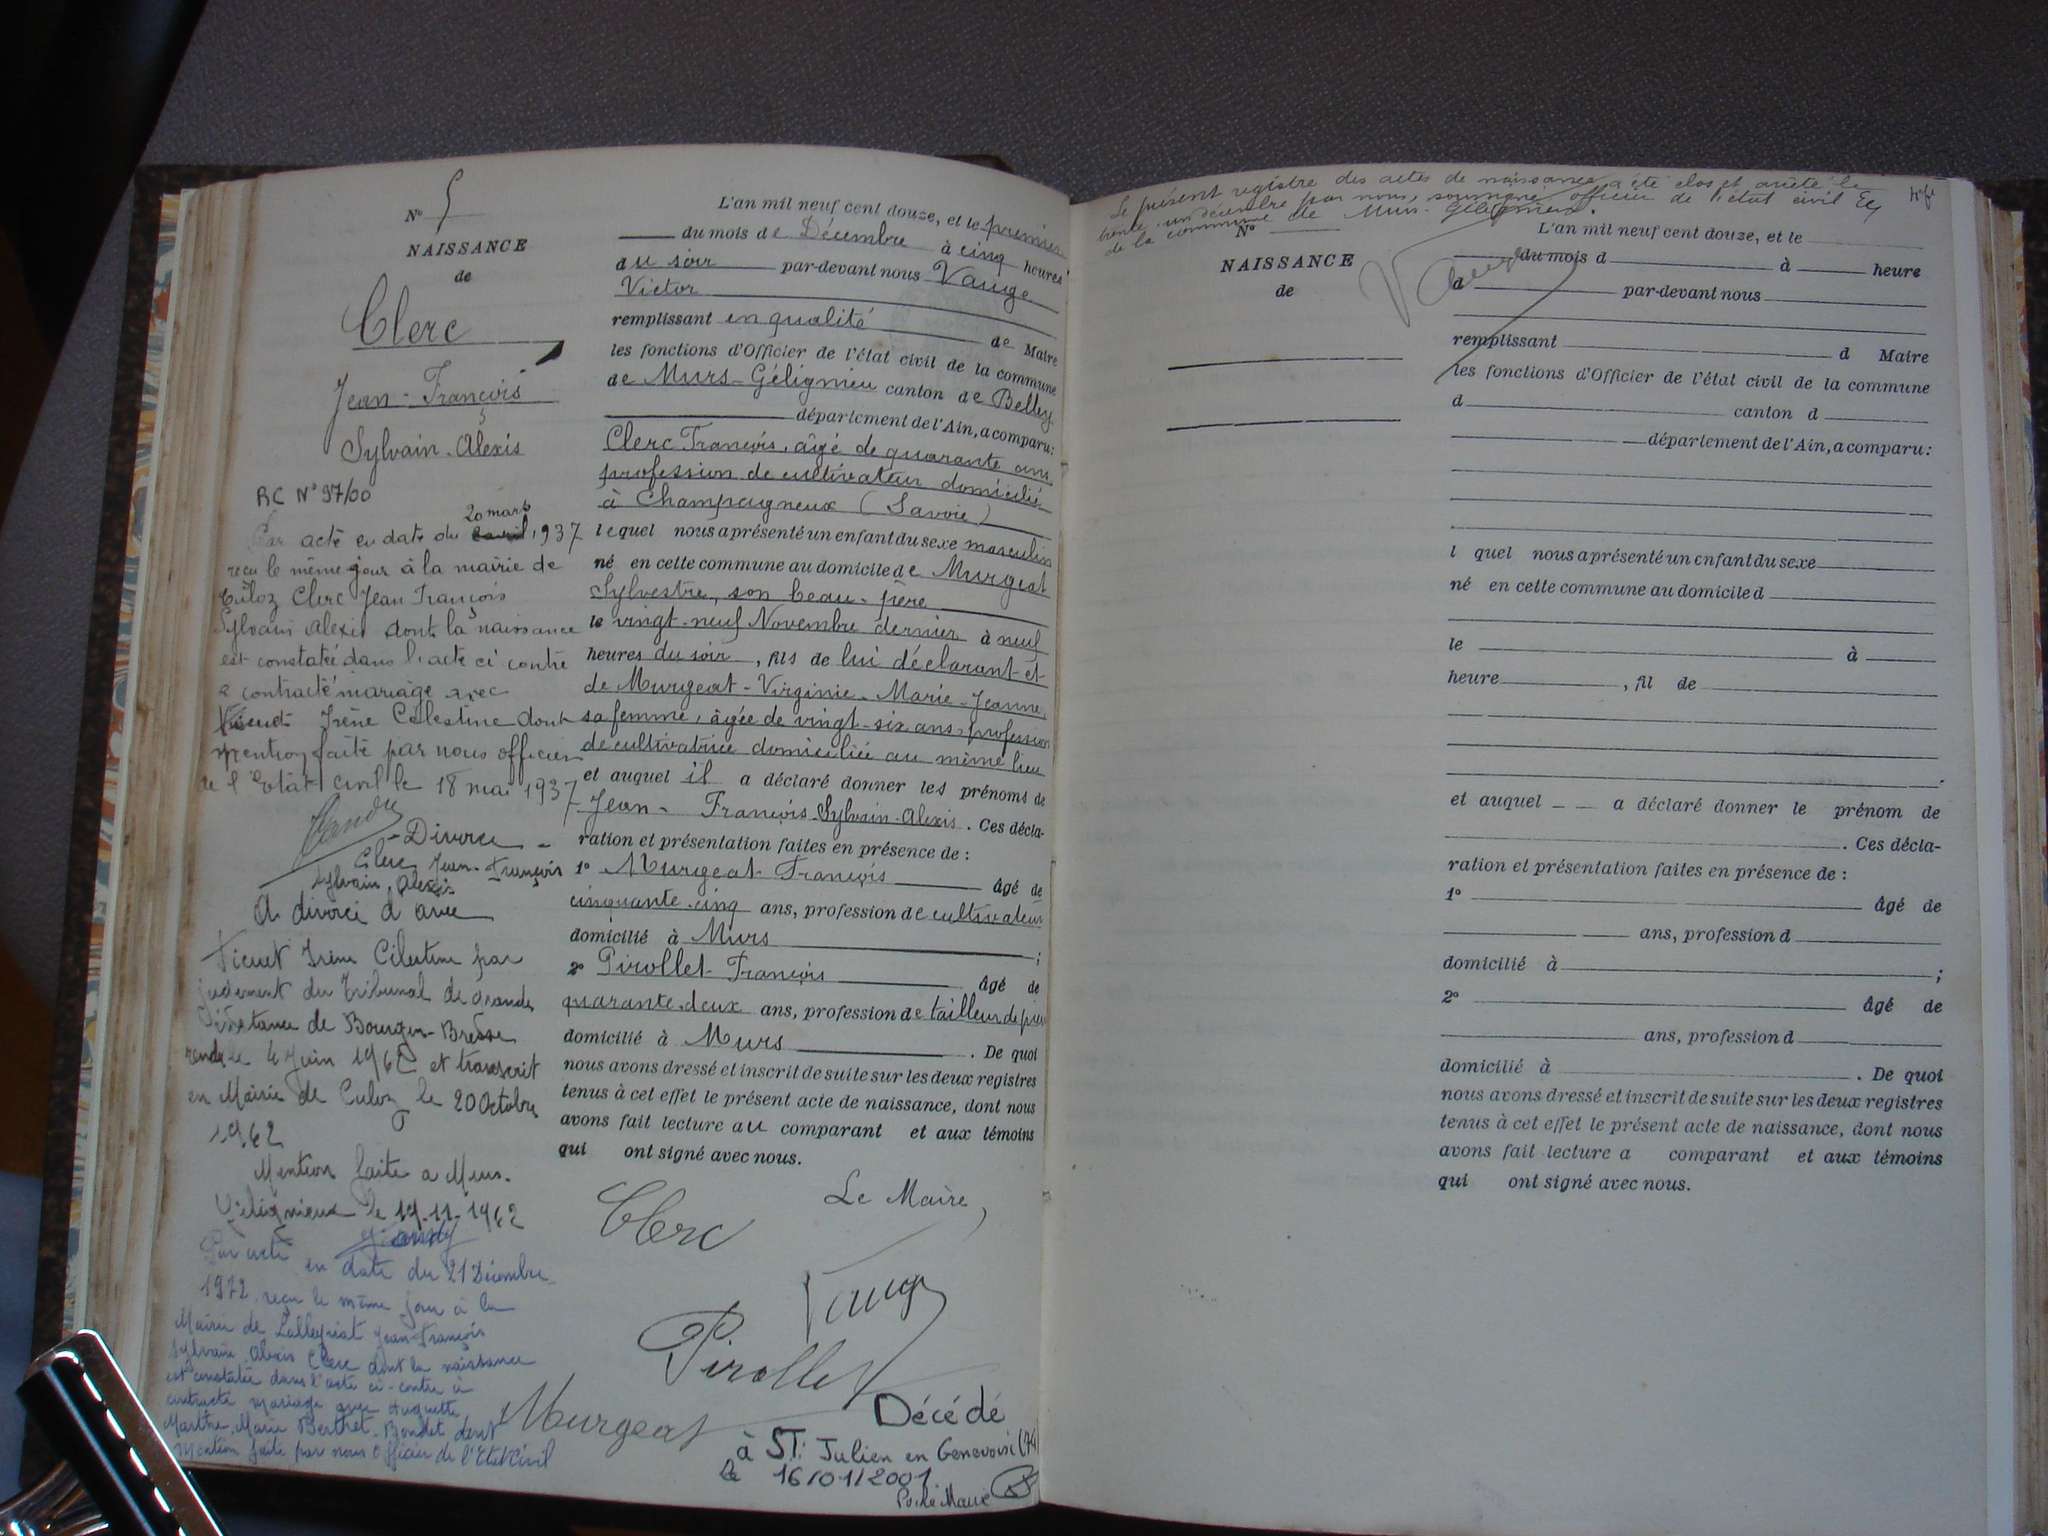 N° 5
NAISSANCE
de
Clerc
Jean-François
Sylvain-Alexis
RC N° 97/00
Par acte en date du 20 mars 1937
reçu le même jour à la mairie de
Culoz Clerc Jean François
Sylvain Alexis dont la naissance
est constatée dans l'acte ci contre
a contracté mariage avec
Irène Célestine dont
mention faite par nous officier
de l'Etat civil le 18 mai 1937
- Divorce -
Clerc Jean-François
Sylvain, Alexis
A divorcé d'avec
Irène Célestine par
jugement du Tribunal de Grande
Instance de Bourg-en-Bresse
rendu le 4 Juin 1962 et transcrit
en Mairie de Culoz le 20 Octobre
1962
Mention faite à Murs-
Gélignieux le 19-11-1962
Par acte en date du 21 Décembre
1972 reçu le même jour à la
Mairie de Jean-François
Sylvain Alexis Clerc dont la naissance
est constatée dans l'acte ci-contre à
contracté mariage avec Huguette
Marthe Marie Berthet-Bondet dont
Mention faite par nous Officier de l'Etat Civil
L'an mil neuf cent douze, et le premier
du mois de Décembre à cinq heures
du soir par-devant nous Vauge
Victor
remplissant en qualité de Maire
les fonctions d'Officier de l'état civil de la commune
de Murs-Gélignieu canton de Belley
département de l'Ain, a comparu:
Clerc François, âgé de quarante ans
profession de cultivateur domicilié
à Champagneux (Savoie)
lequel nous a présenté un enfant du sexe masculin
né en cette commune au domicile de Murgeat
Sylvestre, son beau-père
le vingt-neuf Novembre dernier à neuf
heures du soir, fils de lui déclarant et
de Murgeat-Virginie-Marie-Jeanne,
sa femme, âgée de vingt-six ans, profession
de cultivatrice domiciliée au même lieu
et auquel il a déclaré donner les prénoms de
Jean-François-Sylvain-Alexis. Ces décla-
ration et présentation faites en présence de :
1° Murgeat François âgé de
cinquante-cinq ans, profession de cultivateur
domicilié à Murs ;
2° Pirollet François âgé de
quarante-deux ans, profession de tailleur de pier
domicilié à Murs. De quoi
nous avons dressé et inscrit de suite sur les deux registres
tenus à cet effet le présent acte de naissance, dont nous
avons fait lecture au comparant et aux témoins
qui ont signé avec nous.
Clerc
Le Maire,
Vauge
Pirollet
Murgeat
Décédé
à ST. Julien en Genevois (74)
le 16/01/2001
P. le Maire
Le présent registre des actes de naissance a été clos et arrêté le
trente un décembre par nous, soussigné officier de l'état civil
de la commune de Murs-Gélignieux.
Vauge
N°
NAISSANCE
de
L'an mil neuf cent douze, et le
du mois d à heure
d par-devant nous
remplissant d Maire
les fonctions d'Officier de l'état civil de la commune
d canton d
département de l'Ain, a comparu:
l quel nous a présenté un enfant du sexe
né en cette commune au domicile d
le à
heure , fil de
et auquel a déclaré donner le prénom de
. Ces décla-
ration et présentation faites en présence de :
1° âgé de
ans, profession d
domicilié à ;
2° âgé de
ans, profession d
domicilié à . De quoi
nous avons dressé et inscrit de suite sur les deux registres
tenus à cet effet le présent acte de naissance, dont nous
avons fait lecture a comparant et aux témoins
qui ont signé avec nous.